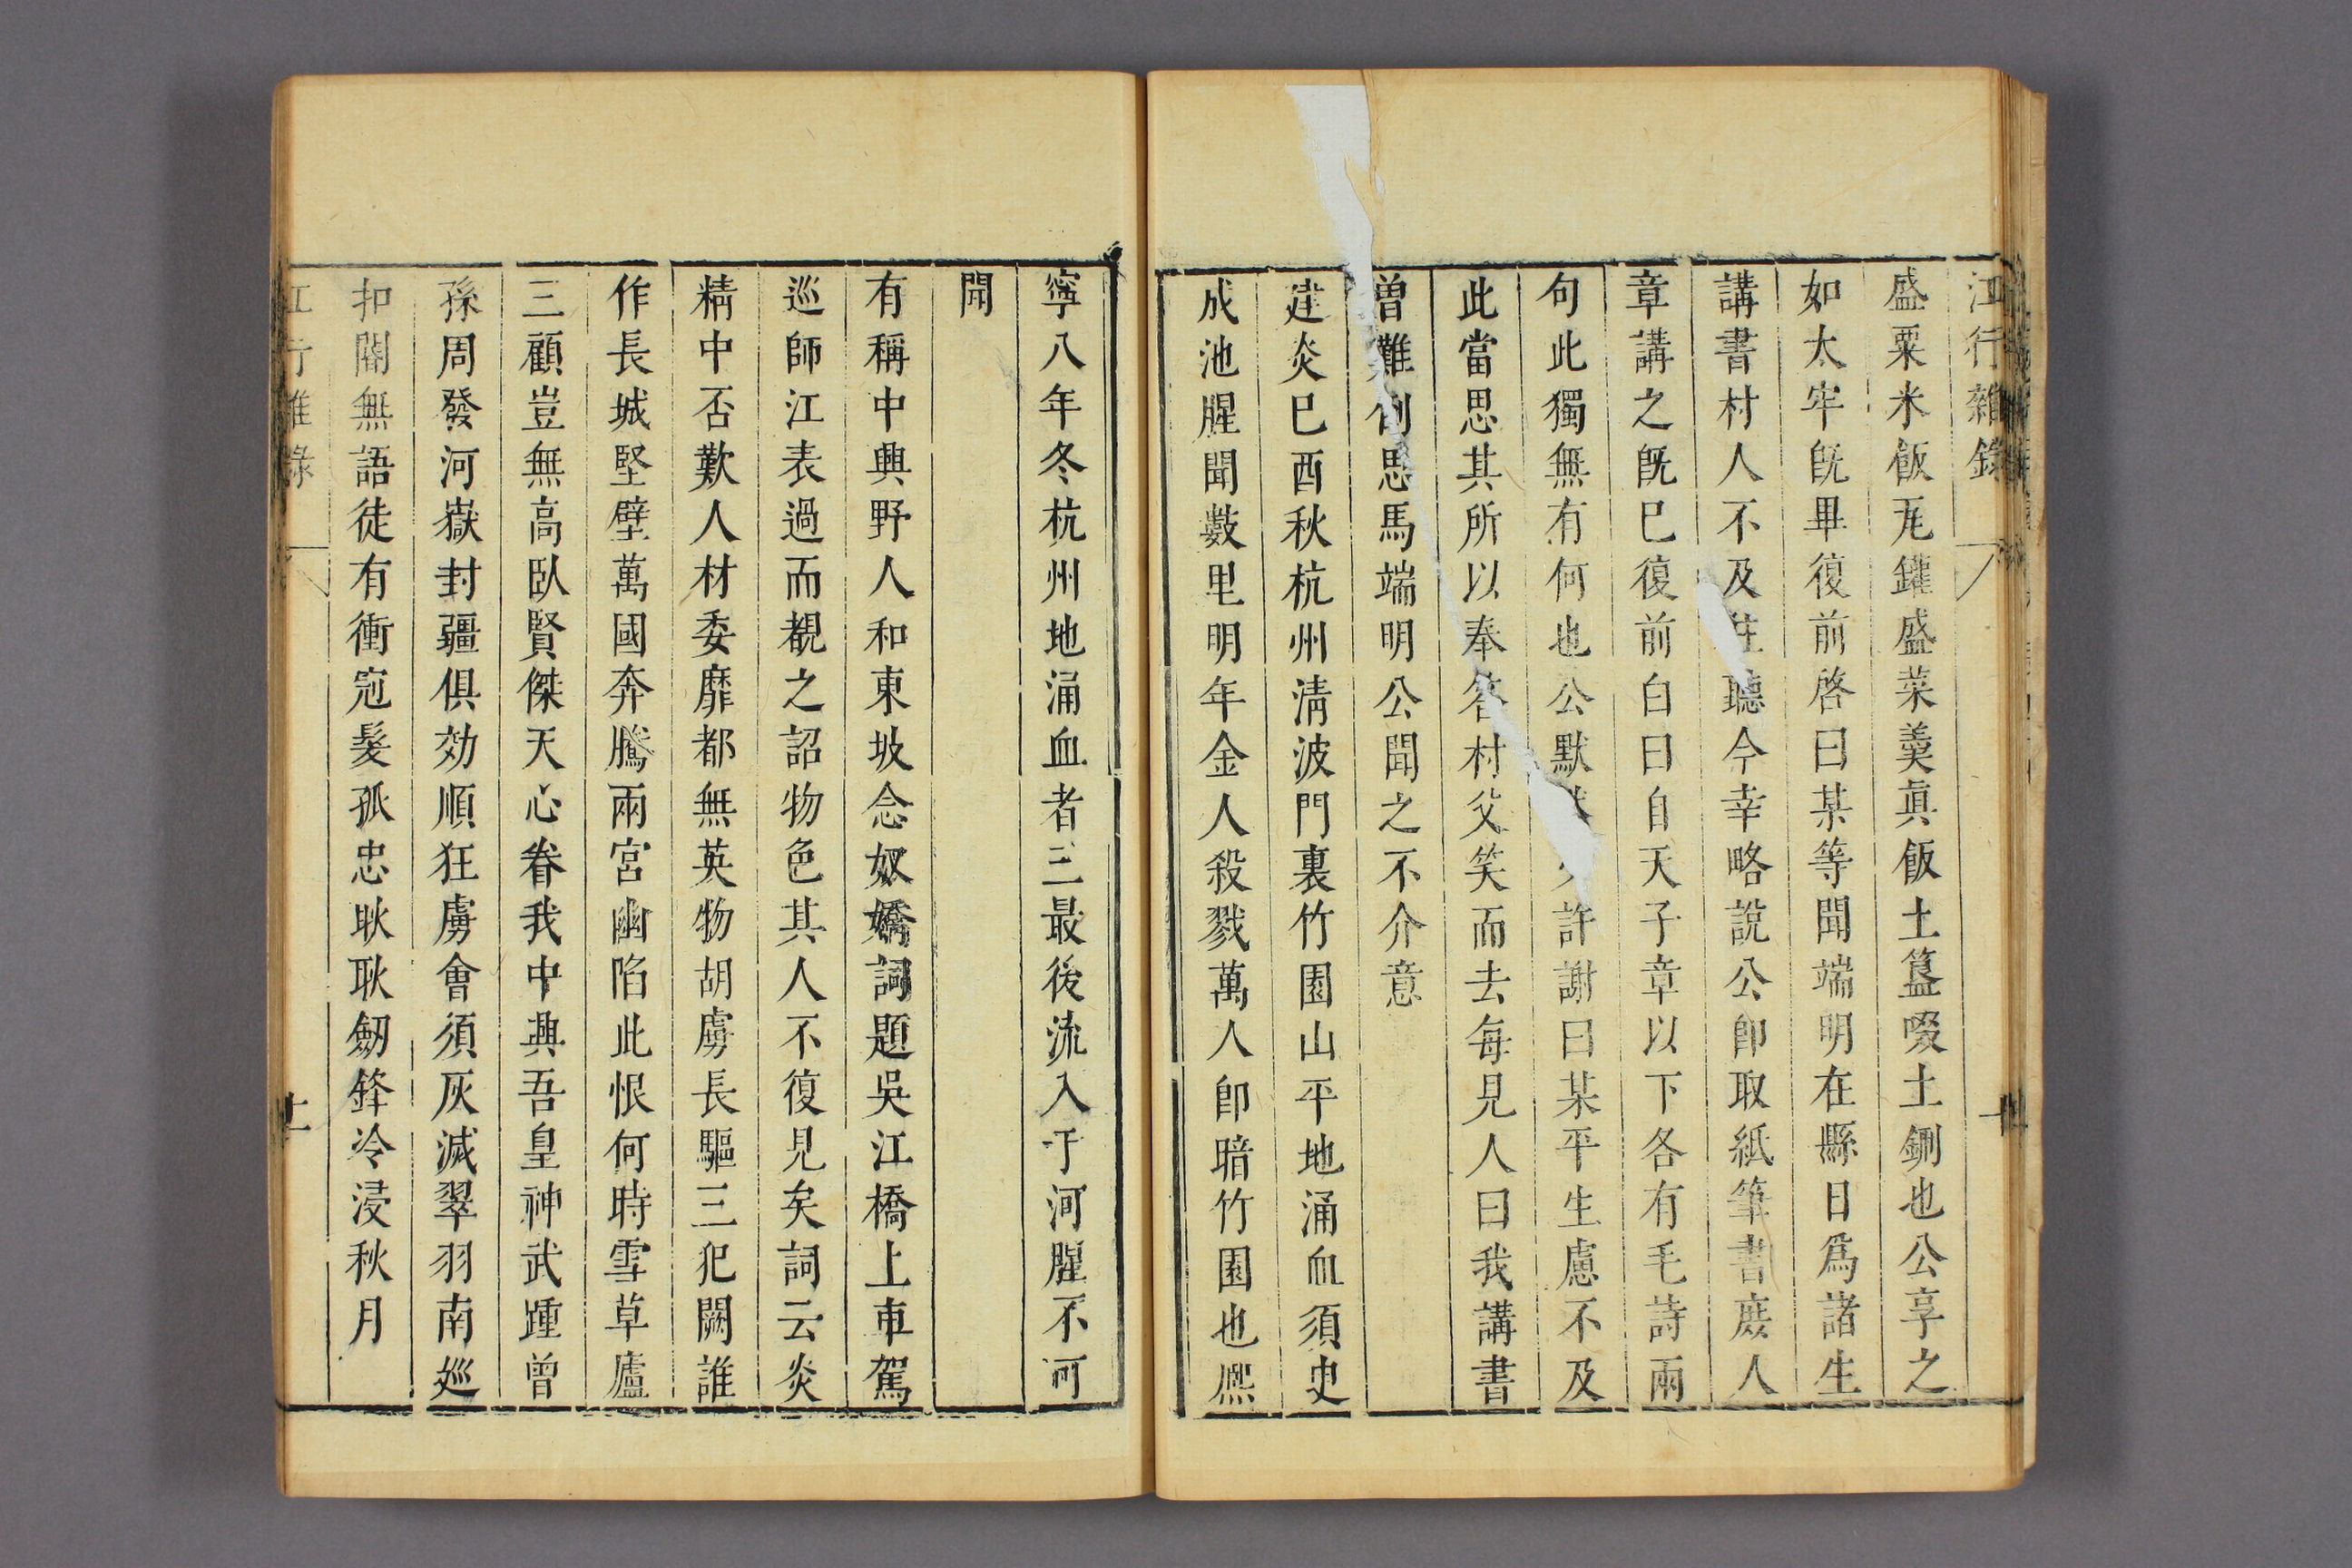 江行雜錄
十
盛粟米飯瓦鑵盛菜羹眞飯土簋啜土鉶也公享之
如太牢旣畢復前啓曰某等聞端明在縣日爲諸生
講書村人不及往聽今幸略說公卽取紙筆書庶人
章講之旣巳復前白曰自天子章以下各有毛詩兩
句此獨無有何也公默然許謝曰某平生慮不及
此當思其所以奉答村父笑而去每見人曰我講書
曾難倒司馬端明公聞之不介意
建炎巳酉秋杭州淸波門裏竹園山平地涌血須史
成池腥聞數里明年金人殺戮萬人卽暗竹園也熈
寧八年冬杭州地涌血者三最後流入于河腥不可
聞
有稱中興野人和東坡念奴嬌詞題吳江橋上車駕
巡師江表過而覩之詔物色其人不復見矣詞云炎
精中否歎人材委靡都無英物胡虜長驅三犯闕誰
作長城堅壁萬國奔騰兩宮幽陷此恨何時雪草廬
三顧豈無高臥賢傑天心眷我中興吾皇神武踵曾
孫周發河嶽封疆俱効順狂虜會須灰滅翠羽南廵
扣閽無語徒有衝冠髮孤忠耿耿劒鋒冷浸秋月
江行雜錄
十